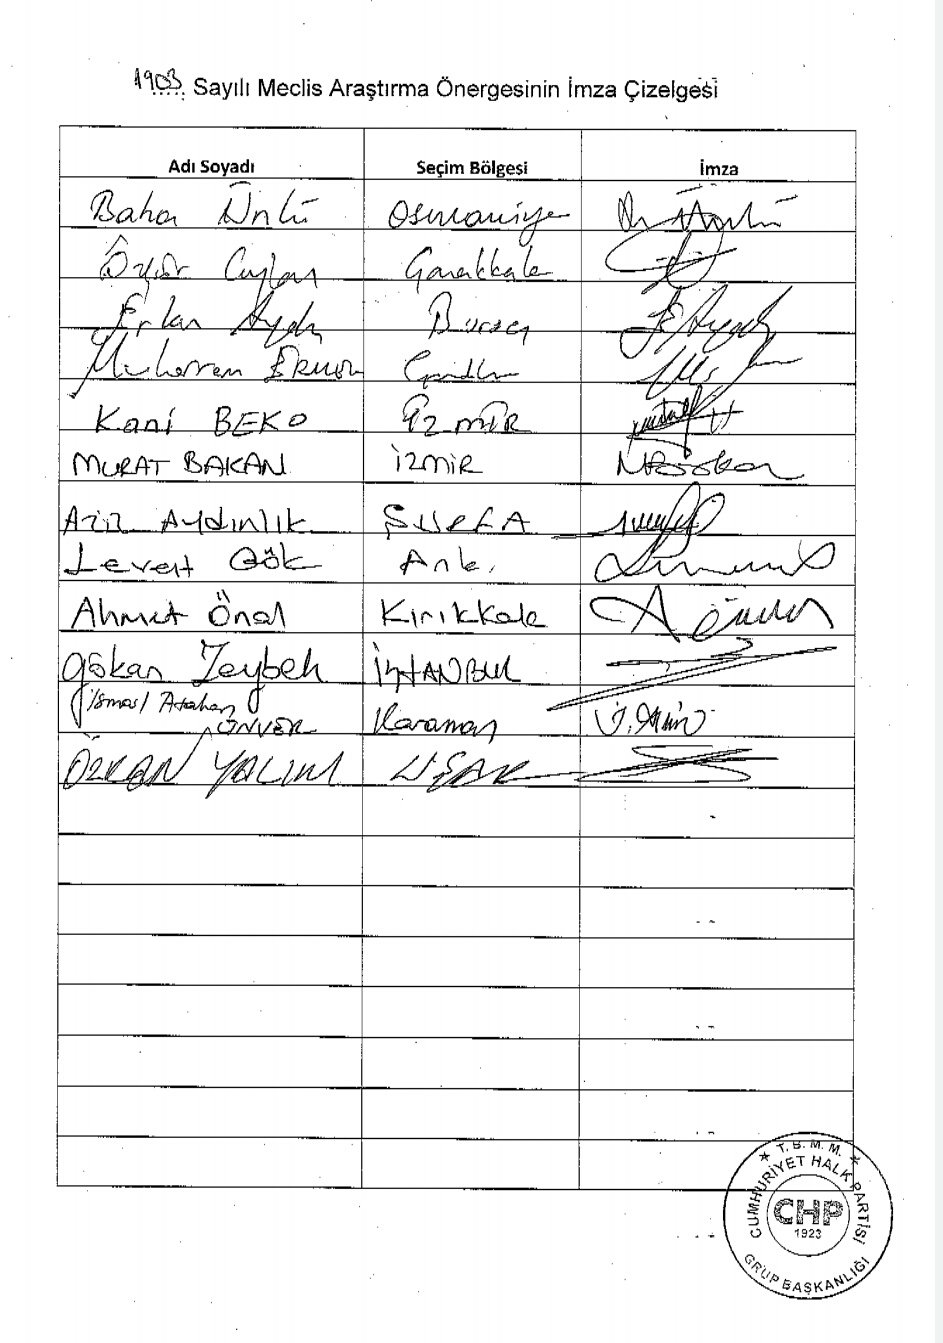 1903 Sayılı Meclis Araştırma Önergesinin İmza Çizelgesi
Adı Soyadı Seçim Bölgesi İmza
Baha Ünlü Osmaniye
Özgür Ceylan Çanakkale
Erkan Aydın Bursa
Muharrem Erkek
Kani BEKO İZMİR
MURAT BAKAN İZMİR
Aziz Aydınlık Ş.URFA
Levent Gök Ank.
Ahmet Önal Kırıkkale
Gökan Zeybek İSTANBUL
İsmail Atakan
ÜNVER Karaman
ÖZKAN YALIM UŞAK
T.B.M.M.
CUMHURİYET HALK PARTİSİ
CHP
1923
GRUP BAŞKANLIĞI